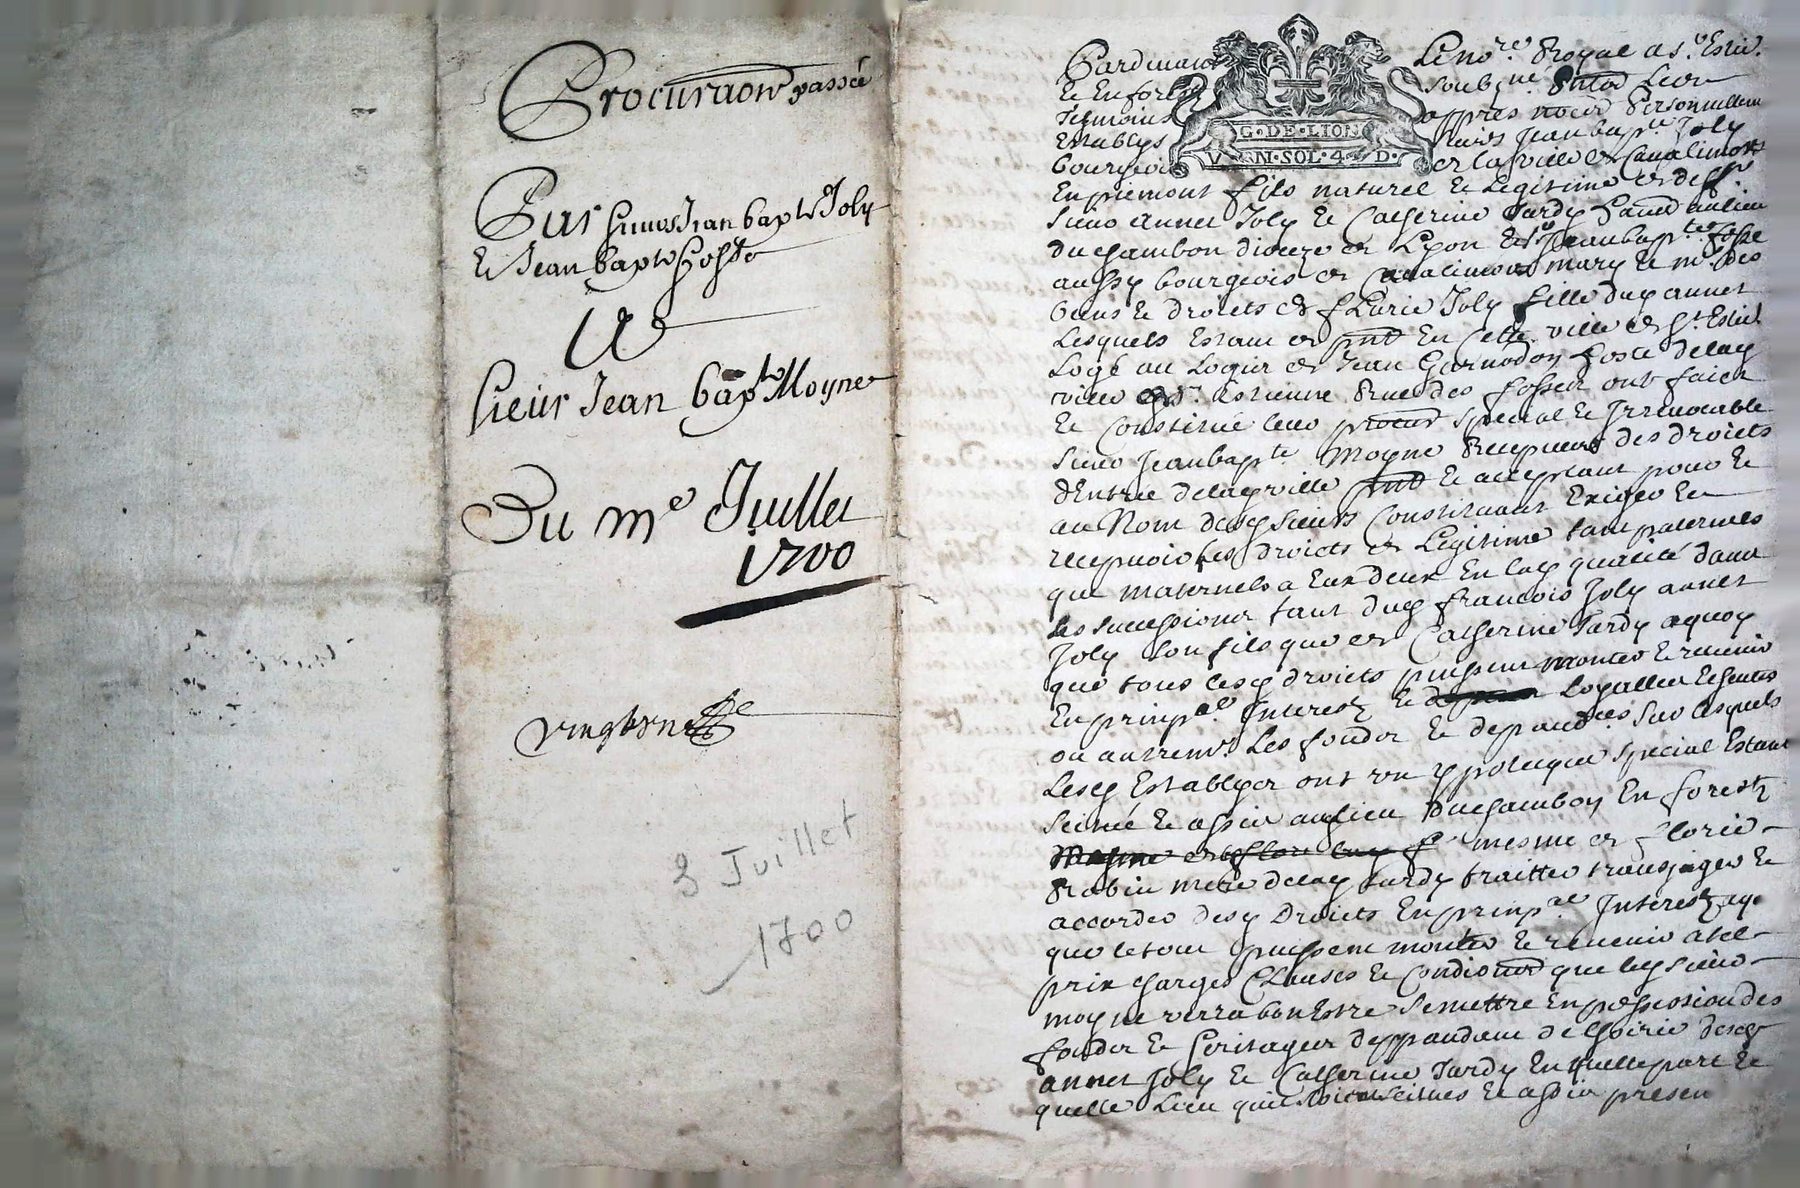 Procuration passée
Par sieurs Jean Bapte Joly
Et Jean Bapte Hoste
A
Sieur Jean Bapte Moyne
Du me Juillet
1700
vingtune
8 Juillet
1700
G·DE·LION
V·N·SOL·4·D·
Pardevant Le nore Royal a St Estie.
Et En forestz soubzne
Tesmoins apprès només Personnellem
Establys sieurs Jean bapte Joly
bourgeois de la ville de
En piemont fils naturel Et Legitime de deffts
sieur annet Joly Et Catherine Tardy au lieu
du Chambon dioceze de Lyon Et Sr Jean bapte hoste
aussy bourgeois de mary Et me des
biens Et droicts de fLorie Joly fille dud annet
Lesquels Estant de pnt En cette ville de St Estie.
Logé au Logis de Jean hoste de lad
ville St Estienne Rue des fossez ont faict
Et Constitué leur procur special Et Irrevocable
sieur Jean bapte Moyne Recepveur des droicts
dEntrée de lad ville pnt Et acceptant pour Et
au Nom desd sieurs Constituant Exiger Et
recepvoir les droicts de Legitime tant paternels
que maternels a Eux deux En lad qualité dans
les successions tant dud françois Joly annet
Joly son fils que de Catherine Tardy a quoy
que tous lesd droicts puissent monter Et revenir
En prinpal Interestz Et Loyallen
ou autremt Les fondz Et depandces sur lesquels
Lesd Establys ont un ypoteque special Estant
scitué Et assis au lieu du Chambon En forestz
mesme de florie
Rabin mere de lad Tardy traitter transiger Et
accorder desd Droicts En prinpal Interestz
que le tout puissent monter Et revenir a tel
prix charges Clauses Et Conditions que led sieur
moyne verra bon Estre se mettre En possession des
fondz Et heritages deppandant de l'hoirie desd
annet Joly Et Catherine Tardy En quelle part Et
quelle Lieu quils soient scitués Et assis presen